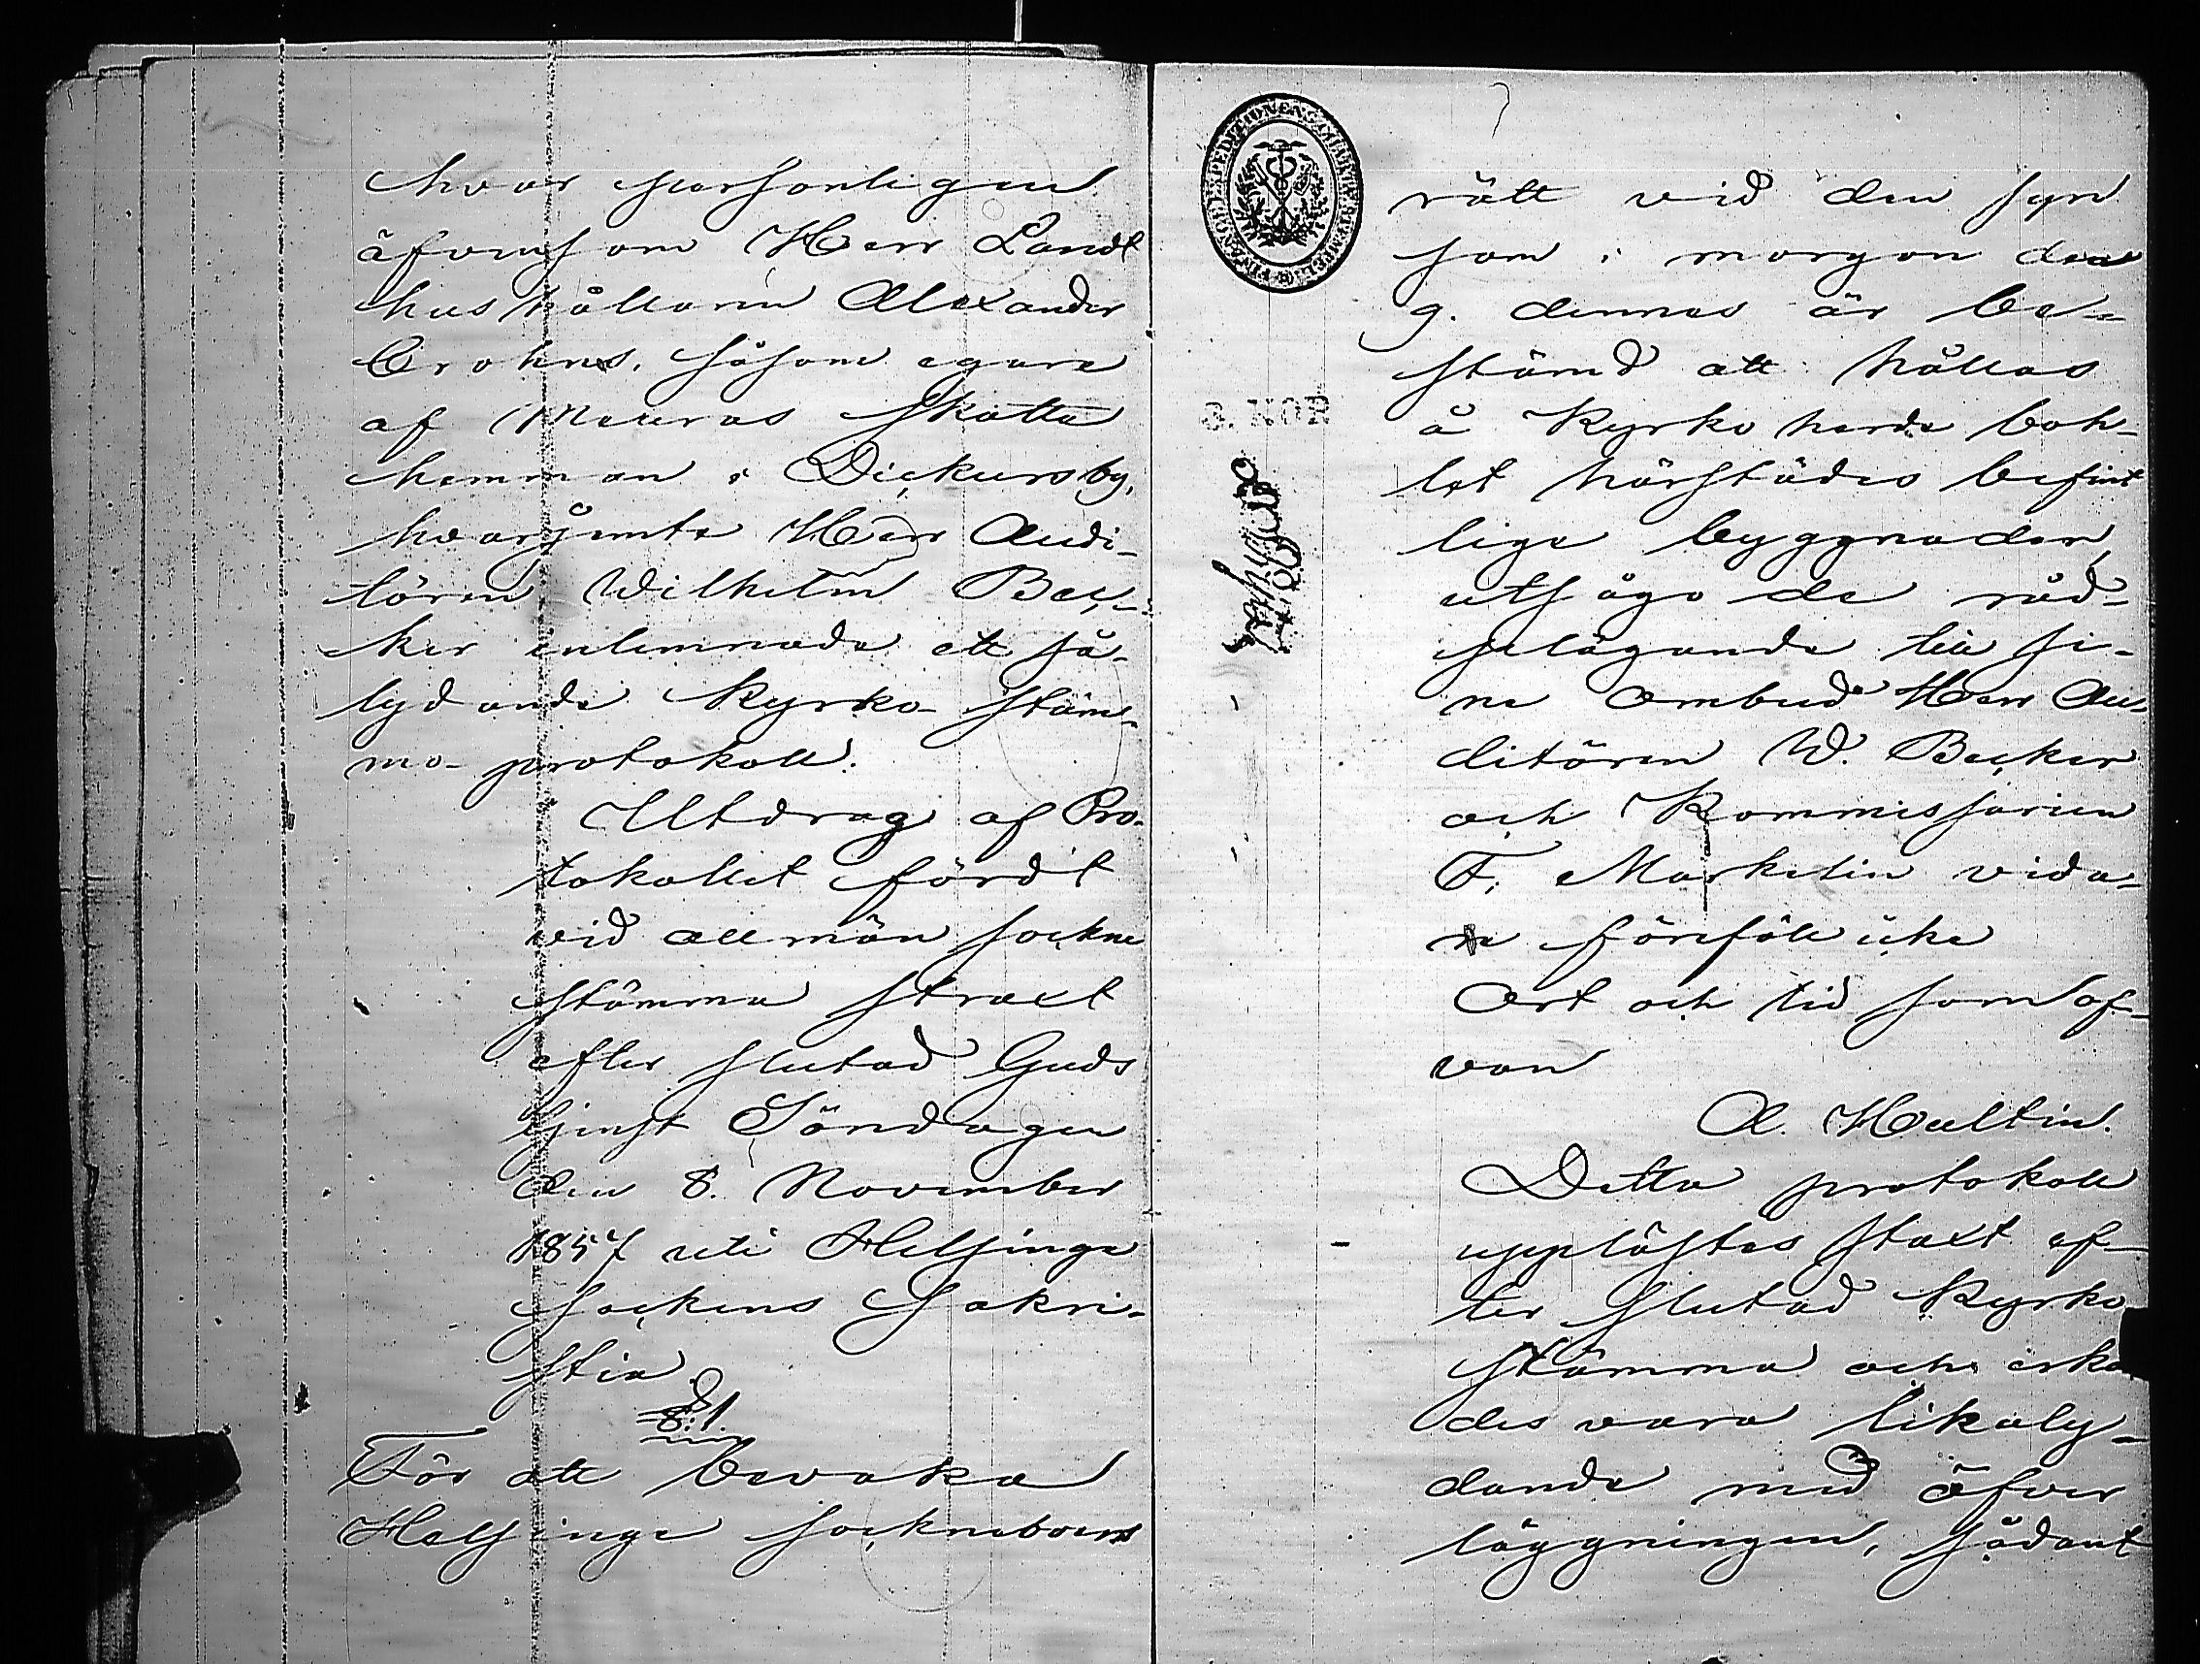 hvar personligen
äfvensom Herr Landt
hushållaren Alexander
Crohns, såsom egare
af Mauras Skatte
hemman i Dickursby,
hvarjemte Herr Audi-
tören Wilhelm Bec-
ker inlemnade ett så
lydande Kyrko-stäm-
mo-protokoll.
Utdrag af Pro-
tokollet fördt
vid allmän sockne
stämma straxt
efter slutad Guds
tjenst Söndagen
den 8. November
1857 uti Helsinge
Sockens Sakri-
stia.
§.1.
För att bevaka
Helsinge sockneboers
rätt vid den syn
som i morgon den
9. dennes är be-
stämd att hållas
å Kyrkoherde boh-
let härstädes befint
liga byggnader,
utsågo de råd-
plägande till si-
ne ombud Herr Au-
ditören W. Becker
och Kommissarien
F. Markelin vida-
re föreföll icke
Ort och tid som of-
van
A. Hultin.
Detta protokoll
upplästes staxt ef-
ter slutad Kyrko
stämma och erkän
des vara likaly-
dande med öfver
läggningen, sådant
FINANCE EXPEDITIONENS CHARTÆ STEMPEL
3. KOP